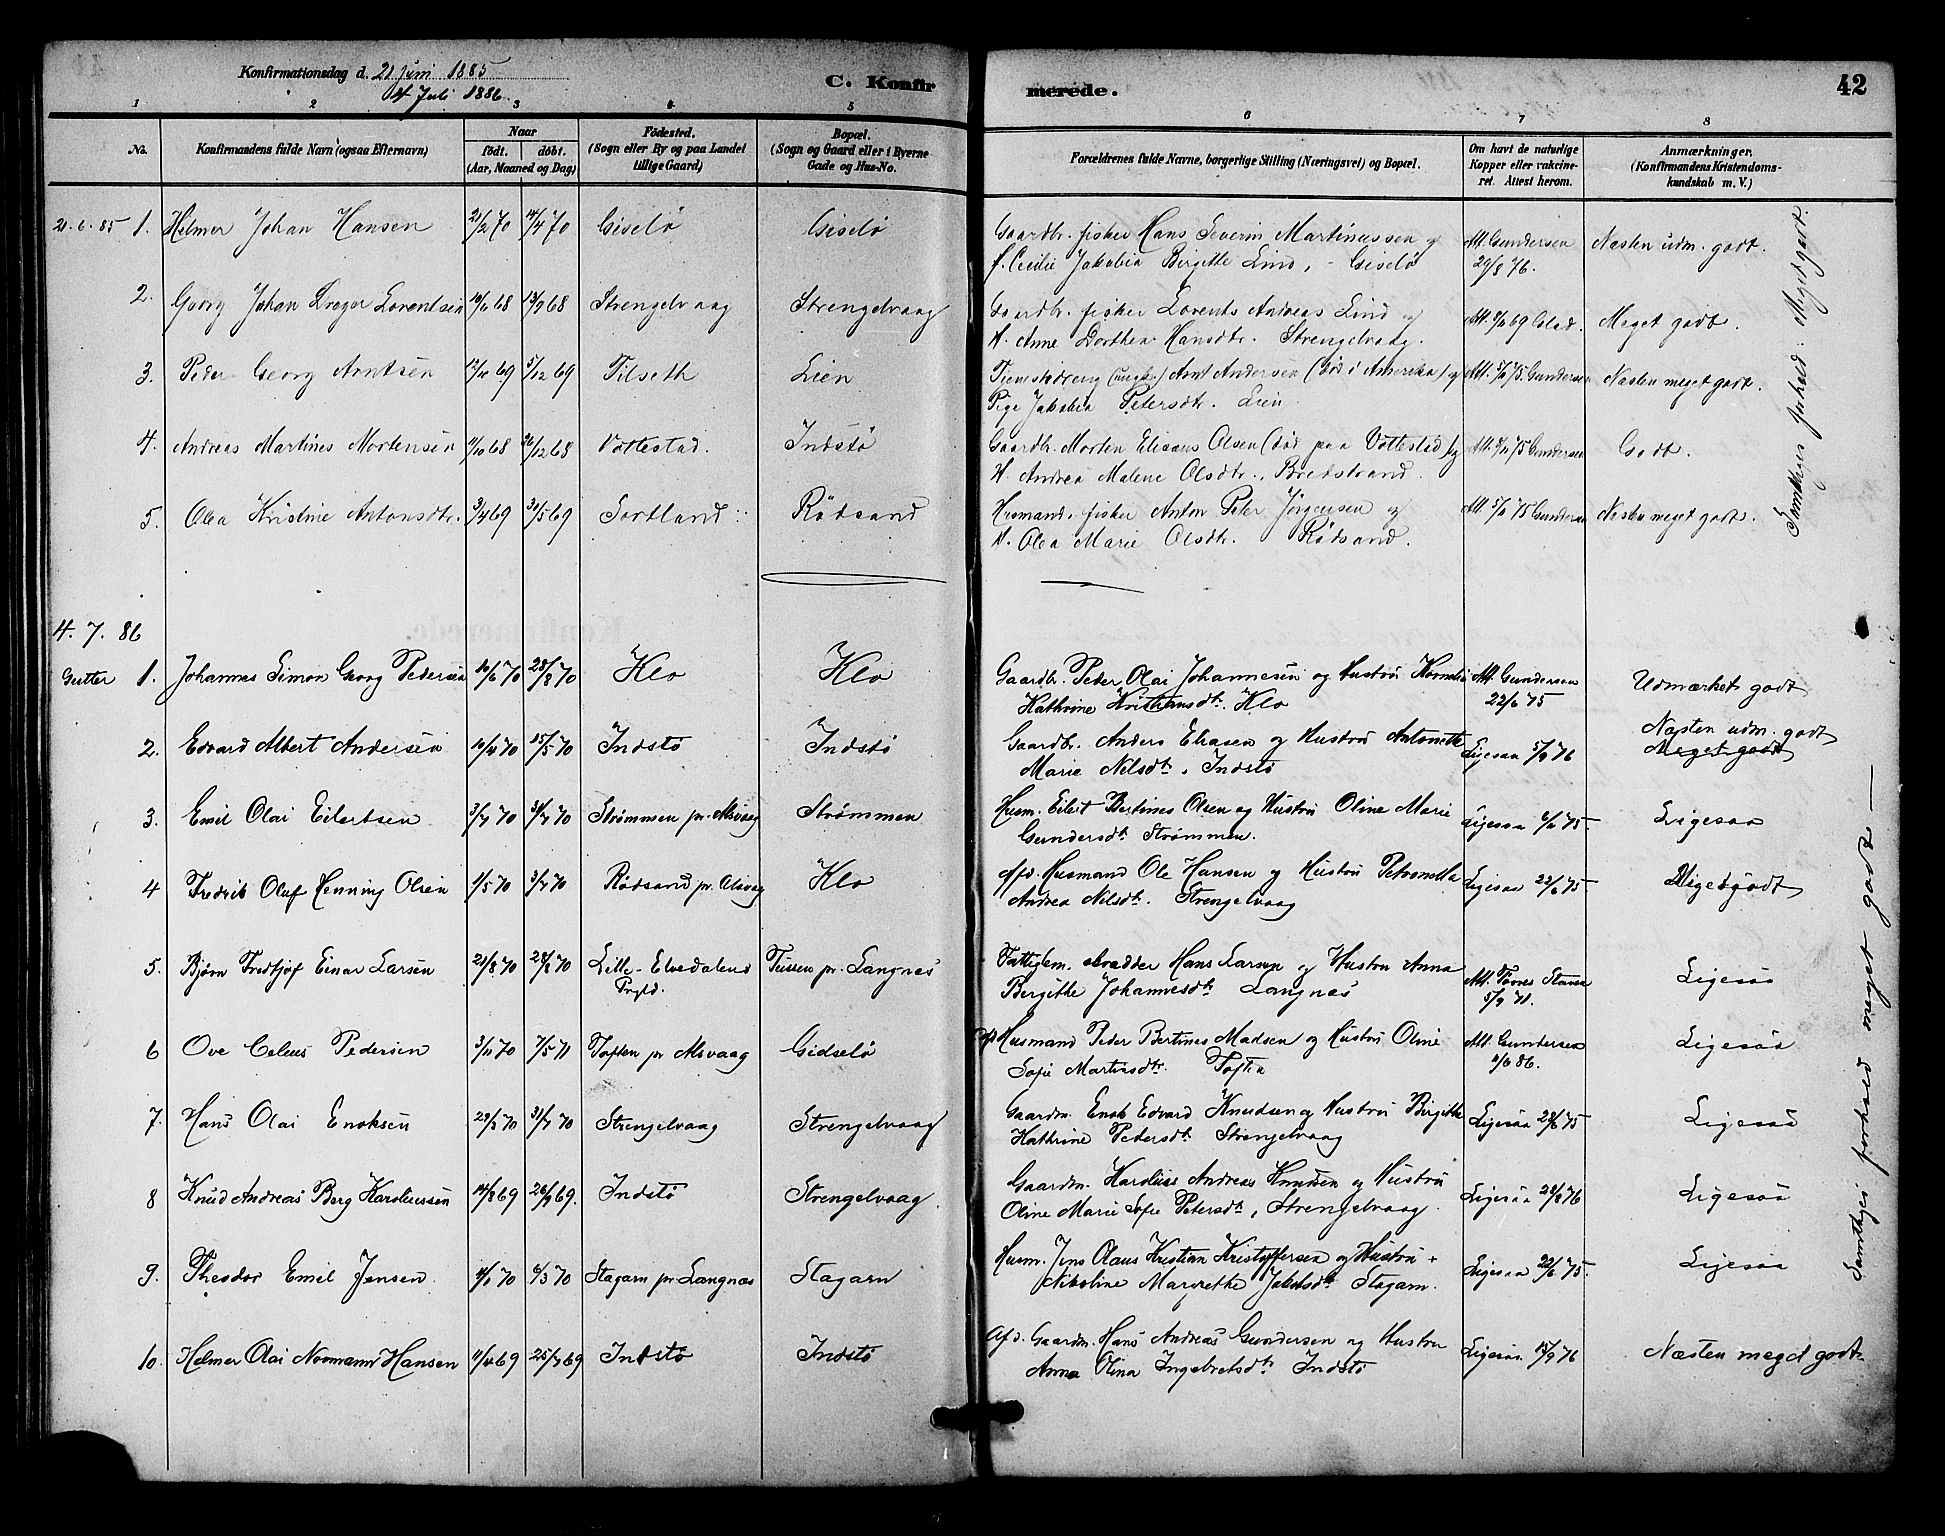 Konfirmationsdag d. 21 Juni 1885
4 Juli 1886.
C. Konfirmerede.
42
1 2 3 4 5 6 7 8
No.
Konfirmandens fulde Navn (ogsaa Efternavn)
Naar
födt. döbt.
(Aar, Maaned og Dag)
Födested.
(Sogn eller By og paa Landet
tillige Gaard)
Bopæl.
(Sogn og Gaard eller i Byerne
Gade og Hus-No.
Forældrenes fulde Navne, borgerlige Stilling (Næringsvei) og Bopæl.
Om havt de naturlige
Kopper eller vakcine-
ret. Attest herom.
Anmærkninger,
(Konfirmandens Kristendoms-
kundskab m. V.)
21.6.85 1. Helmer Johan Hansen 21/2 70 14/4 70 Giselö Giselö Gaardbr. fisker Hans Severin Martinussen og Att. Gundersen Næsten udm. godt.
f. Cecilie Jakobia Bergitte Lind, - Giselö 29/8 76.
2. Georg Johan Dreyer Lorentsen 13/9 68 Strengelvaag Strengelvaag Gaardbr. fisker Lorents Andreas Lind og Meget godt.
H. Anne Dorthea Hansdtr. Strengelvaag.
3. Peder Georg Arntsen 5/12 69 Tilseth Lien Tjenestedreng (ungkr.) Arnt Andersen (död i Amerika) og Gundersen Næsten meget godt.
Pige Jakobia Petersdtr. Lien
4. Andreas Martines Mortensen 11/10 68 26/12 68 Vottestad. Indstö Gaardbr. Morten Eliasus Olsen (död paa Vottestad) og Gundersen Godt.
H. Andrea Malene Olsdtr., Bredstrand.
5. Olea Kristine Antonsdtr. 3/4 69 30/5 69 Sortland Rödsand Husmand, fisker Anton Peter Jörgensen og Gundersen Næsten meget godt.
H. Olea Marie Olsdtr. Rödsand.
Samtliges forhold: Meget godt.
4. 7. 86
Gutter 1. Johannes Simon Georg Pedersen 10/6 70 28/8 70 Klo Klo Gaardbr. Peder Olai Johannesen og Hustru Kornelia Att. Gundersen Udmærket godt
Kathrine Kristiansdtr. Klo 22/6 75
2. Edvard Albert Andersen 10/4 70 15/5 70 Indstö Indstö Gaardbr. Anders Eliasen og Hustru Antonette Ligesaa 5/9 76 Næsten udm. godt
Marie Nilsdtr, Indstö Meget godt
3. Emil Olai Eilertsen 3/7 70 31/7 70 Strømmen pr. Alsvaag Strømmen Husm. Eilert Bertines Olsen og Hustru Oline Marie Ligesaa Ligesaa
Gundersdtr Strømmen.
4 Fredrik Oluf Henning Olsen 1/5 70 3/7 70 Rödsand pr. Alsvaag Klo Afd. Husmand Ole Hansen og Hustru Petronella Ligesaa 22/6 75 Meget godt
Andrea Nilsdtr. Strengelvaag
5. Bjørn Fredtjof Einar Larsen 21/8 70 28/8 70 Lille-Elvedalens Tussen pr. Langnæs Fattiglem. skrædder Hans Larsen og Hustru Anna Ligesaa
Prgld. Bergitte Johannesdtr Langnæs 5/9 71.
6 Ove Celeus Pedersen 3/11 70 7/5 71 Toften pr Alsvaag Gidselö Husmand Peder Bertines Madsen og Hustru Oline Att Gundersen Ligesaa
Sofie Martinsdtr. Toften 86.
7. Hans Olai Enoksen 29/3 70 31/7 70 Strengelvaag Strengelvaag Gaardm. Enok Edvard Knudsen og Hustru Birgitte Ligesaa 22/6 75 Ligesaa
Kathrine Pedersdtr Strengelvaag
8 Knud Andreas Berg Karoliussen 14/8 69 26/9 69. Indstö Strengelvaag Gaardm. Karolius Andreas Knudsen og Hustru Ligesaa 29/8 76 Ligesaa
Oline Marie Sofie Petersdtr, Strengelvaag
9. Theodor Emil Jensen 6/3 70 Stagarn pr. Langnæs Stagarn Husm. Jens Olaus Kristian Kristoffersen og Hustru Ligesaa 22/6 75. Ligesaa
Nikoline Margrethe Jakobsdtr Stagarn.
10. Helmer Olai Normann Hansen 11/4 69 25/7 69 Indstö Indstö Afd. Gaardm. Hans Andreas Gundersen og Hustru Ligesaa 15/9 76 Næsten meget godt
Anna Olina Ingebretsdtr Indstö
Samtliges forhold meget godt